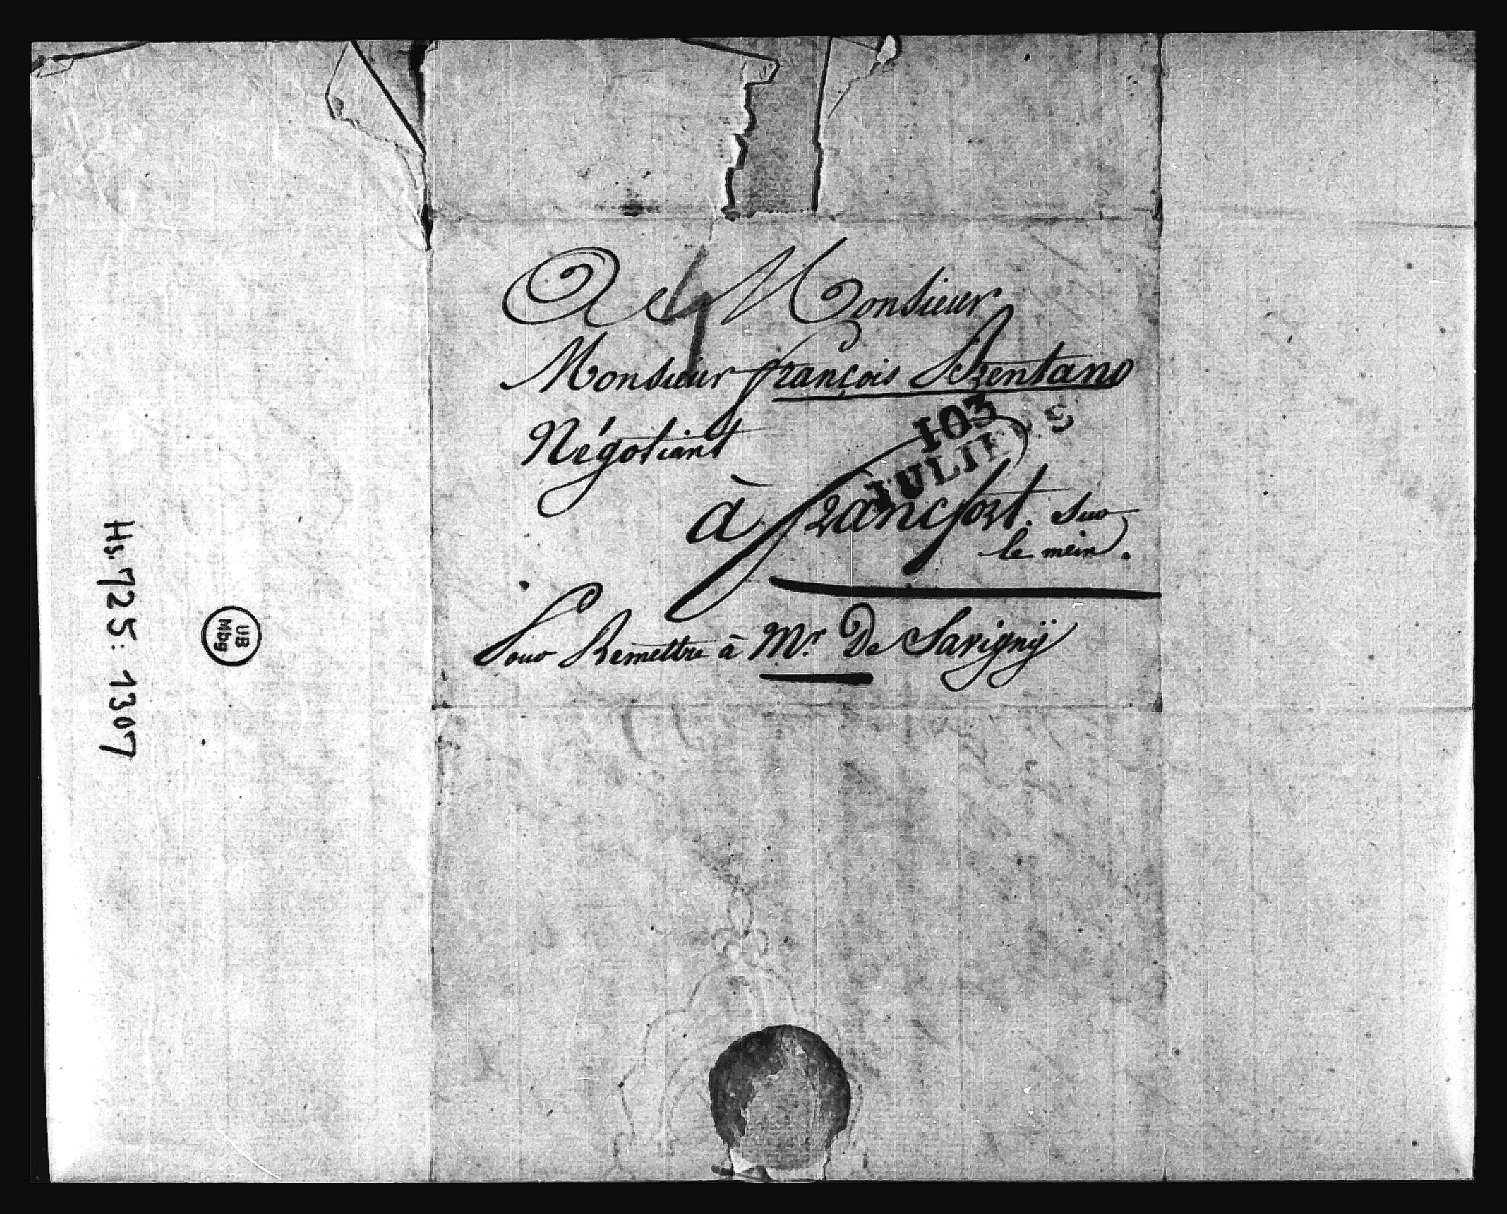 A Monsieur
4
Monsieur françois Brentano
Négotiant
103
JULIERS
à francfort. Sur
le mein.
Pour Remettre à Mr. De Savignÿ
Hs. 725: 1307
UB
Mbg